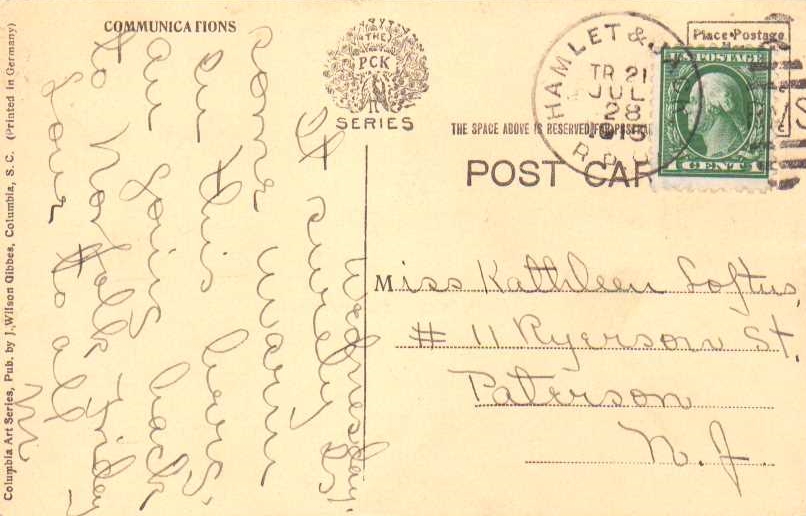 COMMUNICATIONS
THE
PCK
SERIES
Place Postage
HAMLET &
TR 21
JUL
28
1915
R.P.O.
U.S. POSTAGE
1 CENT 1
THE SPACE ABOVE IS RESERVED FOR POSTMARK
POST CAR
Miss Kathleen Loftus,
# 11 Ryerson St,
Paterson
N. J.
Wednesday.
It surely is
some warm
in this here.
am going back
to Norfolk Friday
Love to all
M
Columbia Art Series, Pub. by J. Wilson Gibbes, Columbia, S. C. (Printed in Germany)